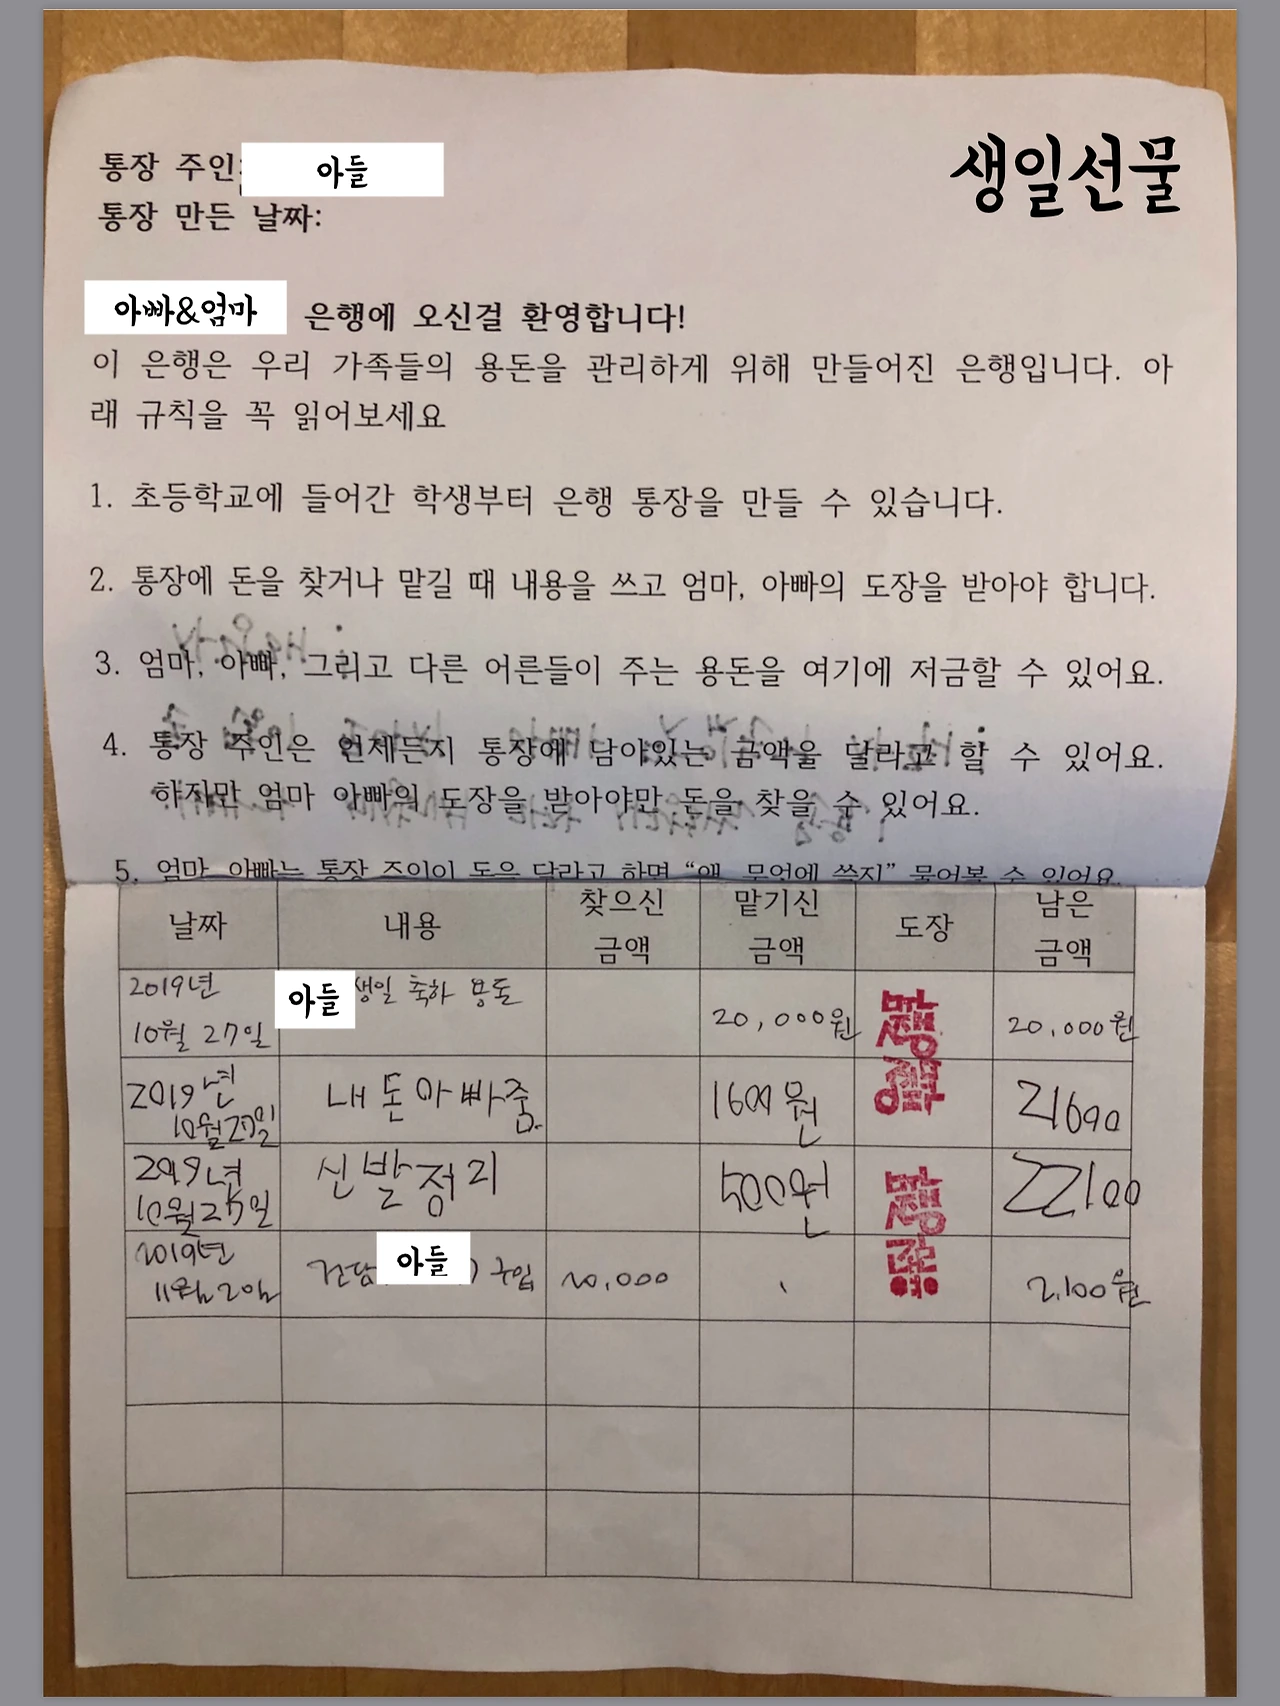 생일선물
통장 주인: 아들
통장 만든 날짜:
아빠&엄마 은행에 오신걸 환영합니다!
이 은행은 우리 가족들의 용돈을 관리하게 위해 만들어진 은행입니다. 아
래 규칙을 꼭 읽어보세요
1. 초등학교에 들어간 학생부터 은행 통장을 만들 수 있습니다.
2. 통장에 돈을 찾거나 맡길 때 내용을 쓰고 엄마, 아빠의 도장을 받아야 합니다.
3. 엄마, 아빠, 그리고 다른 어른들이 주는 용돈을 여기에 저금할 수 있어요.
4. 통장 주인은 언제든지 통장에 남아있는 금액을 달라고 할 수 있어요.
하지만 엄마 아빠의 도장을 받아야만 돈을 찾을 수 있어요.
5. 엄마 아빠는 통장 주인이 돈을 달라고 하면 “왜, 무엇에 쓸지” 물어볼 수 있어요.
날짜 내용 찾으신 금액 맡기신 금액 도장 남은 금액
2019년 10월 27일 아들 생일 축하 용돈 20,000원 20,000원
2019년 내 돈 아빠줌. 1600원 21600
2019년 신발정리 500원 22100
2019년 아들 구입 20,000 2,100원